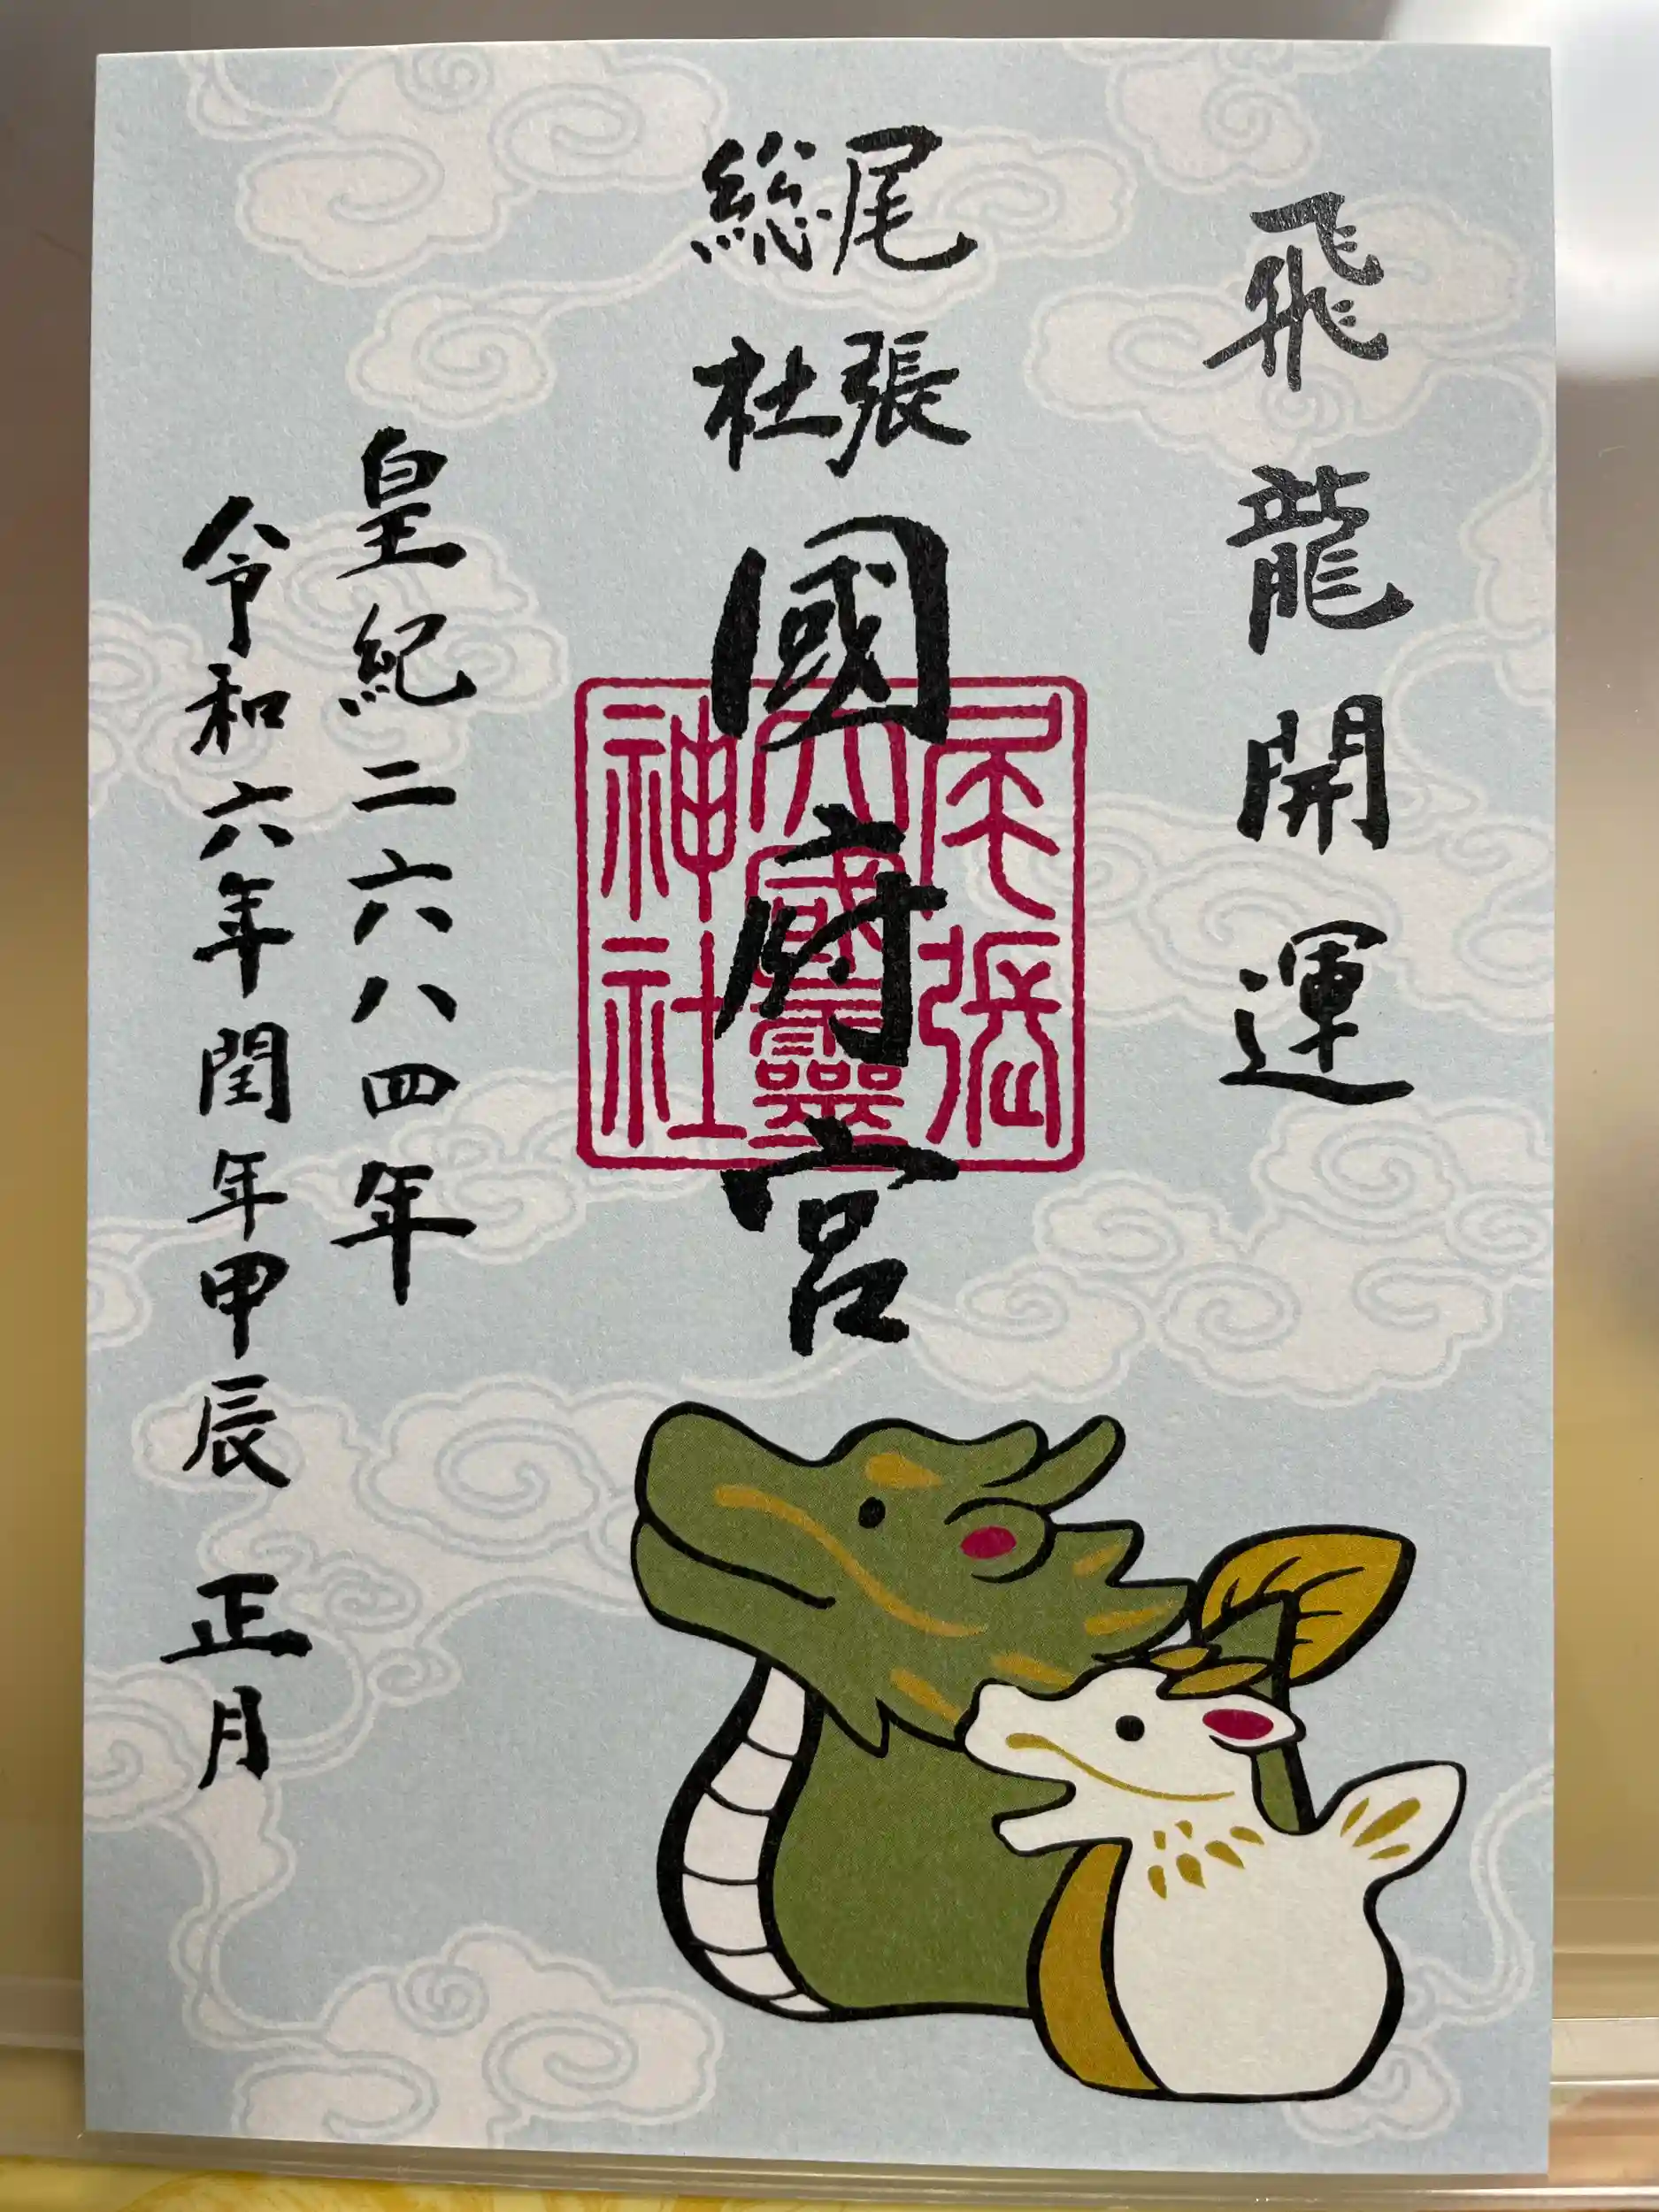 飛龍開運
尾張
総社
國府宮
尾張
大國霊
神社
皇紀二六八四年
令和六年閏年甲辰 正月